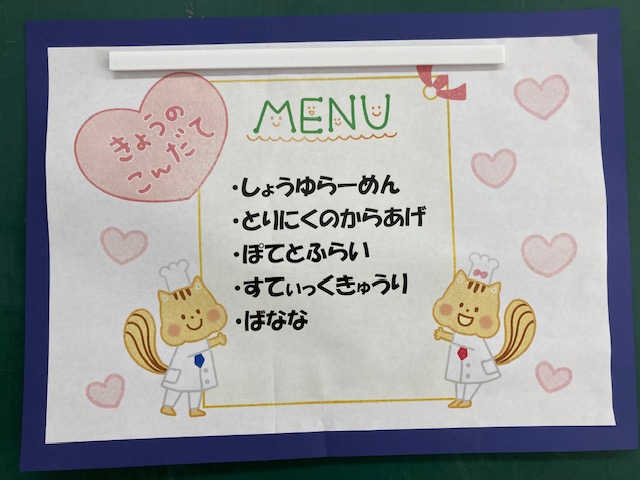 きょうの
こんだて
MENU
・しょうゆらーめん
・とりにくのからあげ
・ぽてとふらい
・すてぃっくきゅうり
・ばなな